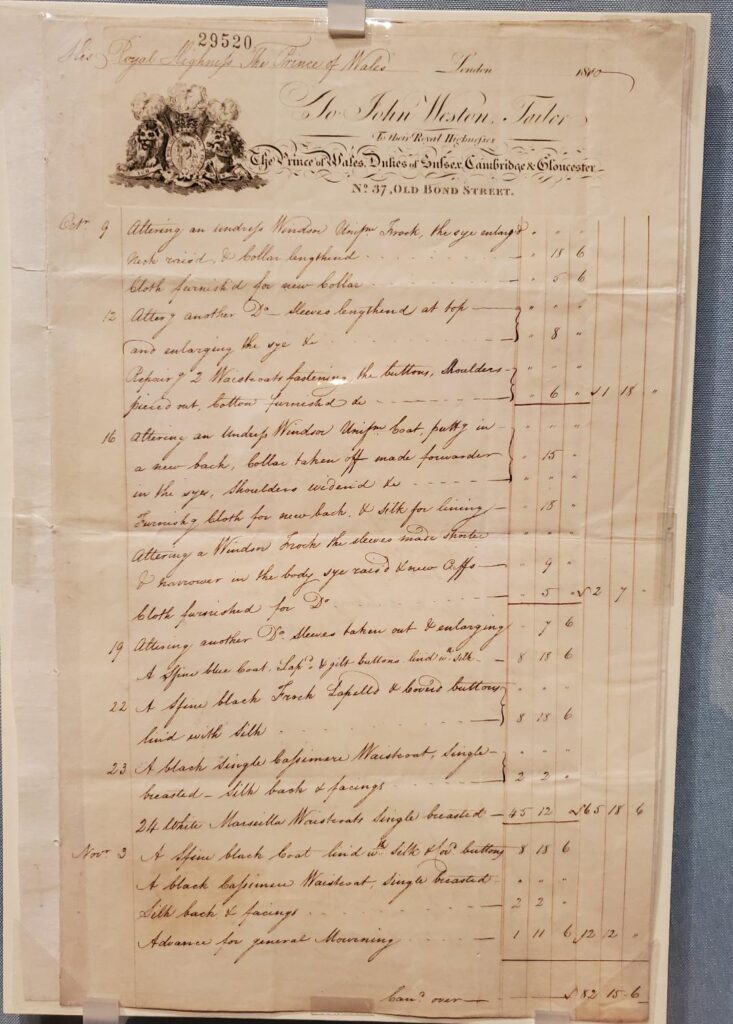 29520
His Royal Highness The Prince of Wales London 1810
To John Weston, Tailor
To their Royal Highnesses
The Prince of Wales, Dukes of Sussex, Cambridge & Gloucester
No. 37, OLD BOND STREET.
Octr. 9 Altering an undress Windsor Unifm Frock, the sye enlargd " " "
Neck raisd, & Collar lengthend " 18 6
Cloth furnish'd for new Collar " 5 6
12 Alterg another Do Sleeves lengthend at top " " "
and enlarging the sye &c " 8 "
Repairg 2 Waistcoats fastening the buttons, Shoulders " " "
pieced out, Cotton furnish'd &c " 6 " £1 18 "
16 Altering an Undress Windsor Unifm Coat puttg in " " "
a new back, Collar taken off made forwarder " 15 "
in the syes, Shoulders widend &c " " "
Furnishg Cloth for new back, & silk for lining " 18 "
Altering a Windsor Frock the sleeves made shorter " " "
& narrower in the body, sye raisd & new Cuffs " 9 "
Cloth furnished for Do " 5 " £2 7 "
19 Altering another Do Sleeves taken out & enlarging " 7 6
A Sfine blue Coat, Lapd. & gilt buttons lind wh. Silk 8 18 6
22 A Sfine black Frock Lapelld & Coverd buttons " " "
lind with Silk 8 18 6
23 A black Single Cassimere Waistcoat, Single " " "
breasted - Silk back & facings 2 2 "
24 White Marseilla Waistcoats Single breasted 45 12 " £65 18 6
Novr. 3 A Sfine black Coat lind wth Silk & buttons 8 18 6
A black Cassimere Waistcoat, Single breasted " " "
Silk back & facings 2 2 "
Advance for general Mourning 1 11 6 12 12 "
Card. over £82 15 6